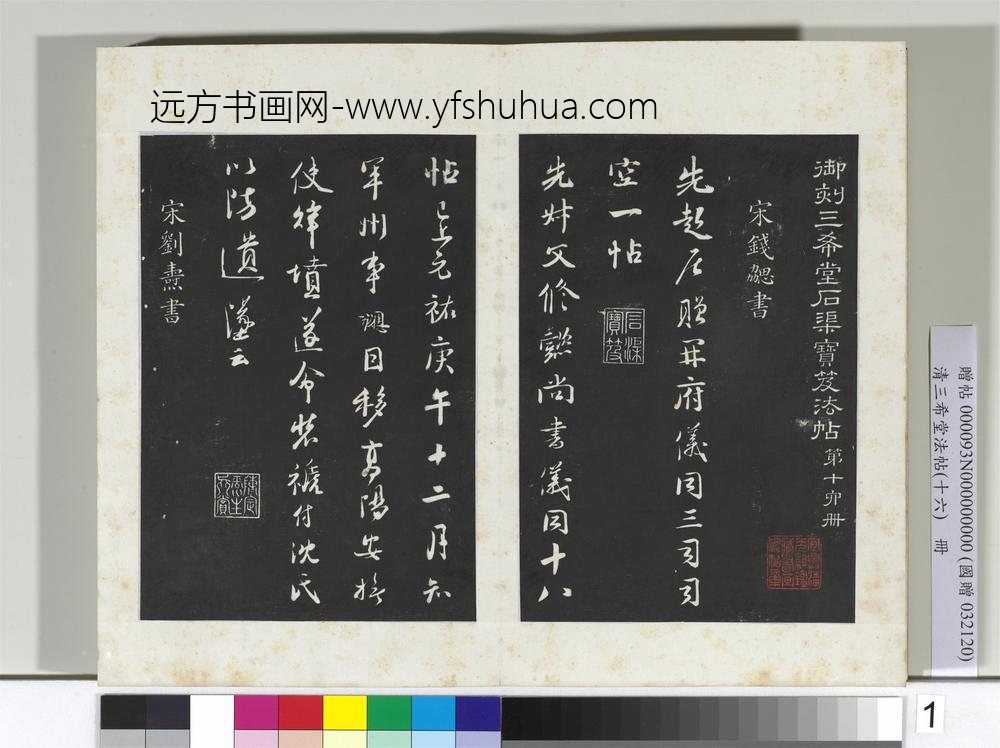 远方书画网-www.yfshuhua.com
御刻三希堂石渠寶笈法帖 第十六冊
宋錢勰書
先起居贈開府儀同三司司
空一帖
石渠寶笈
先叔父修懿尚書儀同十八
帖已上元祐庚午十二月知
軍州事勰因移高陽安撫
使拜墳遂命裝褫付沈氏
以防遺墜云
宋劉燾書
贈帖 000093N000000000 (國贈 032120)
清三希堂法帖(十六) 冊
1